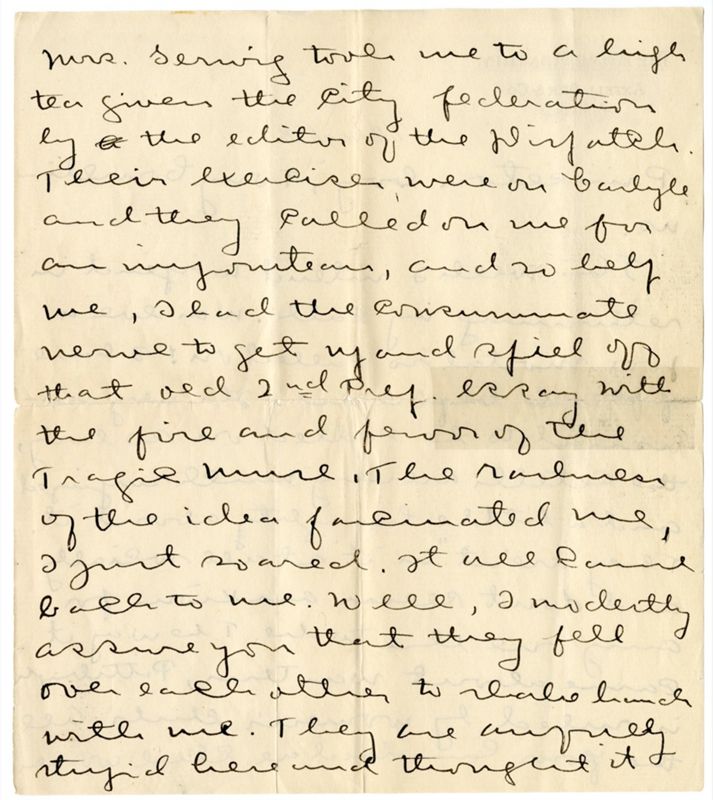 Mrs. Gerwig took me to a high
tea given the City federation
by the editor of the Dispatch.
Their exercises were on Carlyle
and they called on me for
an impromteau, and so help
me, I had the consummate
nerve to get up and spiel off
that old 2nd Prep. essay with
the fire and fervor of the
Tragic Muse. The rankness
of the idea fascinated me,
I just soared. It all came
back to me. Well, I modestly
assure you that they fell
over each other to shake hands
with me. They are awfully
stupid here and thought it